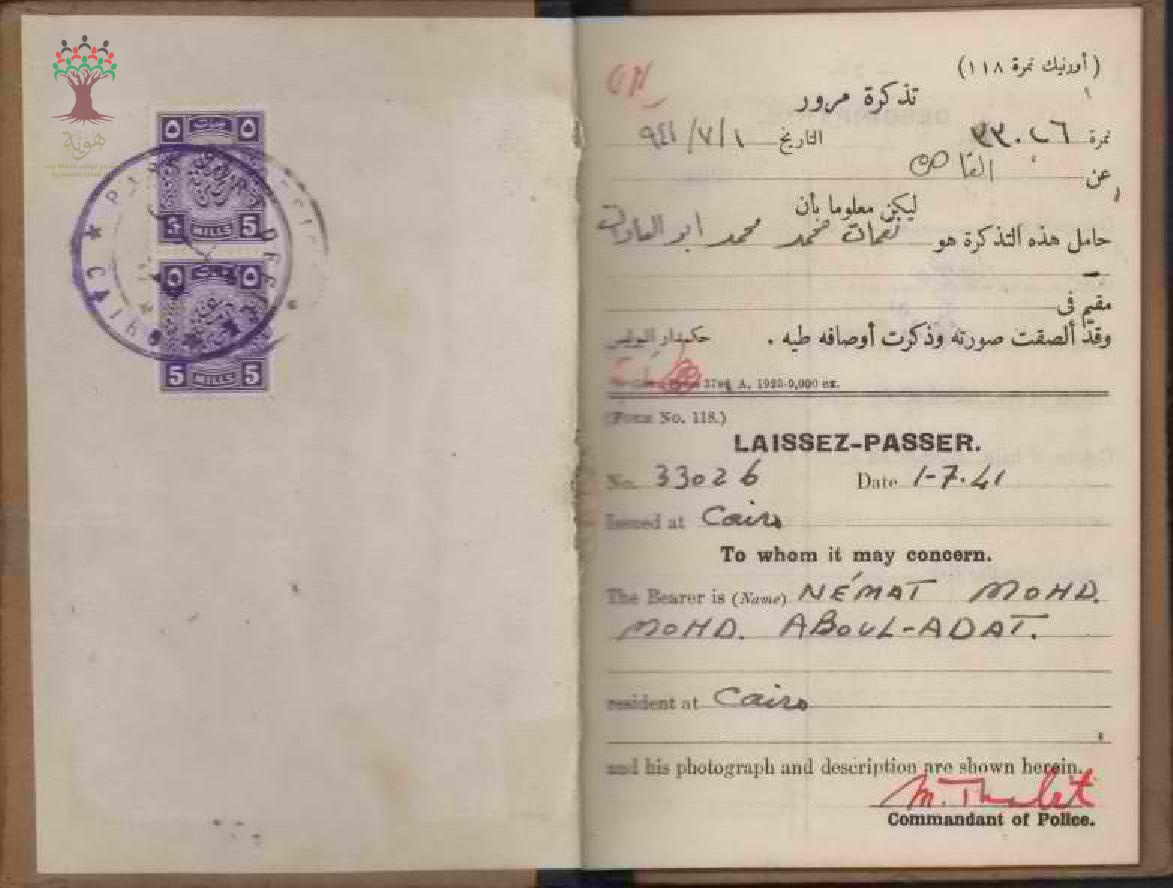 هوية
٥ ٥
5 MILLS 5
٥ ٥
5 MILLS 5
CAIRO
(أورنيك نمرة ١١٨)
تذكرة مرور
نمرة ٣٣٠٢٦ التاريخ ١/٧/٩٤١
عن القاهرة
ليكن معلوما بأن
حامل هذه التذكرة هو نعمات محمد محمد ابو العادات
مقيم فى
وقد ألصقت صورته وذكرت أوصافه طيه . حكمدار البوليس
A, 1925-9,000 ex.
(Form No. 118.)
LAISSEZ-PASSER.
No. 33026 Date 1-7-41
Issued at Cairo
To whom it may concern.
The Bearer is (Name) NÉMAT MOHD.
MOHD. ABOUL-ADAT.
resident at Cairo
and his photograph and description are shown herein.
Commandant of Police.